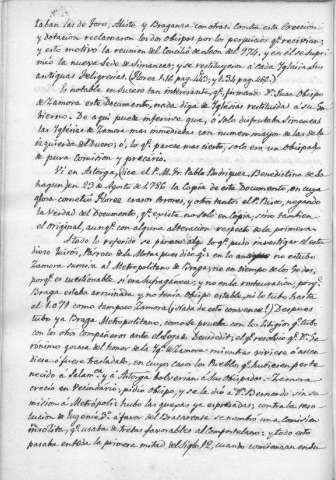 taban las de Toro, Aliste, y Braganza con otras. Contra esta Ereccion
y dotacion reclamaron los dos Obispos por los perjuicios qe. recivian;
y esto motivó la reunion del Concilio de Leon del 974, y en él se supri
mió la nueva Sede de Simancas; y se restituyeron á cada Iglesia sus
antiguas Feligresias. (Florez t. 16 pag. 443; y t. 34 pag. 468.)
Es notable en suceso tan interesante, qe. firmando Dn. Juan Obispo
de Zamora este Documento, nada diga de Iglesias restituidas á su Go
bierno. De aqui puede inferirse que, ó solo disputaba Simancas
las Iglesias de Zamora mas inmediatas con numero mayor de las de la
izquierda del Duero; ó, lo qe. parece mas cierto, solo era un Obispado
de pura Comision y precario.
Vi en Astorga, dice el P. M. Fr. Pablo Rodriguez, Benedictino de Sa
hagun, en 23 de Agosto de 1786 la copia de este Documento, en cuya
glosa cometió Florez crasos errores, y otros tantos el P. Risco, negando
la verdad del Documento, qe. existe no solo en copia, sino tambien
el original, aunque con alguna alteracion respecto de la primera.
A todo lo referido se parece algo lo qe. pudo investigar el
Párroco de la Mota pues dice qe. en lo antiguo no estubo
Zamora sugeta al Metropolitano de Braga, ni en tiempo de los Godos,
porqe. es cuestionable si era sufraganea, y no en la restauracion, porqe.
Braga estaba arruinada y no tenia Obispo estable, ni lo tubo hasta
el 1.079 como tampoco Zamora (¡Nada de esto convence!) Despues
tubo ya Braga Metropolitano, como se prueba con los Litigios qe. tubo
con los otros Compañeros ante el Legado Deusdedit; el qe. resolvió qe. Dn. Ge-
ronimo gozase del honor de la Yga. de Zamora mientras viviere ó ascen
diera ó fuere trasladado, en cuyos casos los Pueblos qe. hubiesen perte
necido á Salamca. y á Astorga bolverian á sus Obispados. Zamora
creció en Vecindario, pidio Obispo, y se le dió á Dn. Bernardo sin su
mision á Metrópoli; hubo las quejas ya espresadas; contra la reso
lucion de Eugenio 3º. á favor del Bracarense se nombró una Comision
qe. usaba de tretas favorables al Compostelano; y todo esto
pasaba en toda la primera mitad del Siglo 12, cuando comenzaron